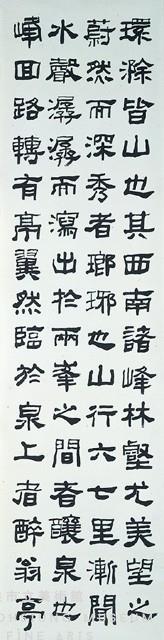 環滁皆山也其西南諸峰林壑尤美望之
蔚然而深秀者瑯琊也山行六七里漸聞
水聲潺潺而瀉出於兩峯之間者釀泉也
峰回路轉有亭翼然臨於泉上者醉翁亭
市立美術館
FINE ARTS